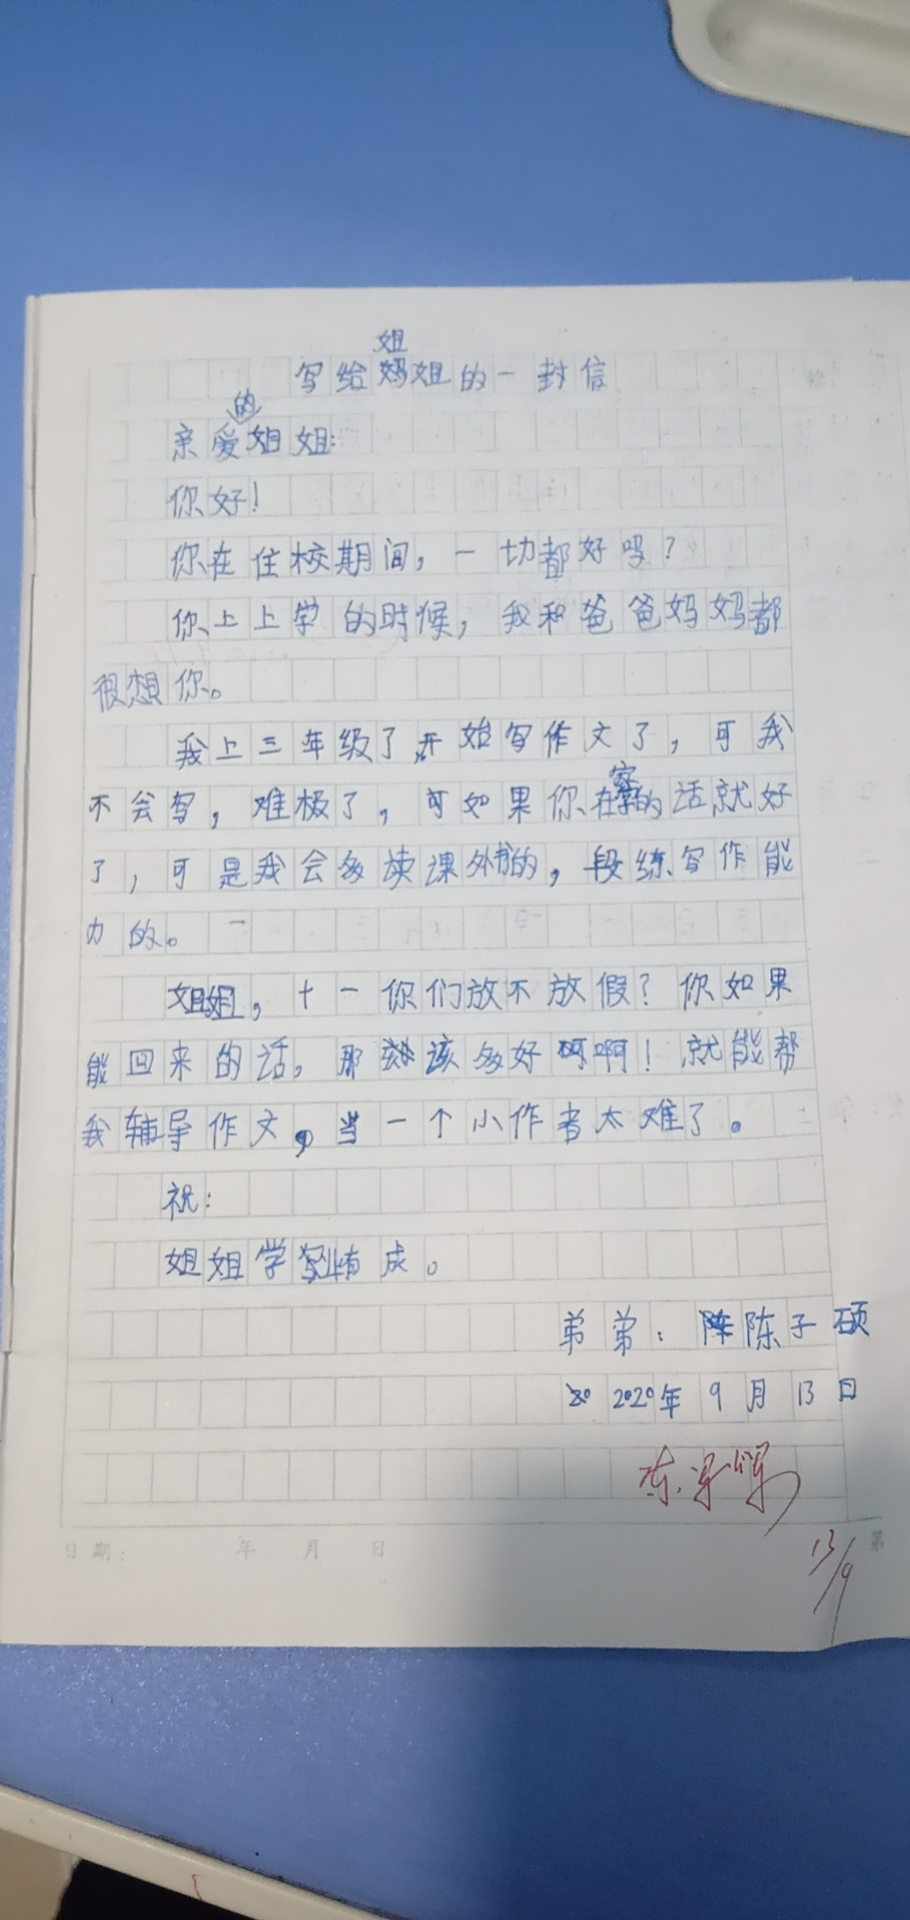 写给姐姐的一封信
亲爱的姐姐:
你好!
你在住校期间,一切都好吗?
你上上学的时候,我和爸爸妈妈都
很想你。
我上三年级了,开始写作文了,可我
不会写,难极了,可如果你在家的话就好
了,可是我会多读课外书的,段练写作能
力的。
姐姐,十一你们放不放假?你如果
能回来的话,那该多好啊!就能帮
我辅导作文,当一个小作者太难了。
祝:
姐姐学业有成。
弟弟:陈子硕
2020年9月13日
13/9
日期: 年 月 日
第